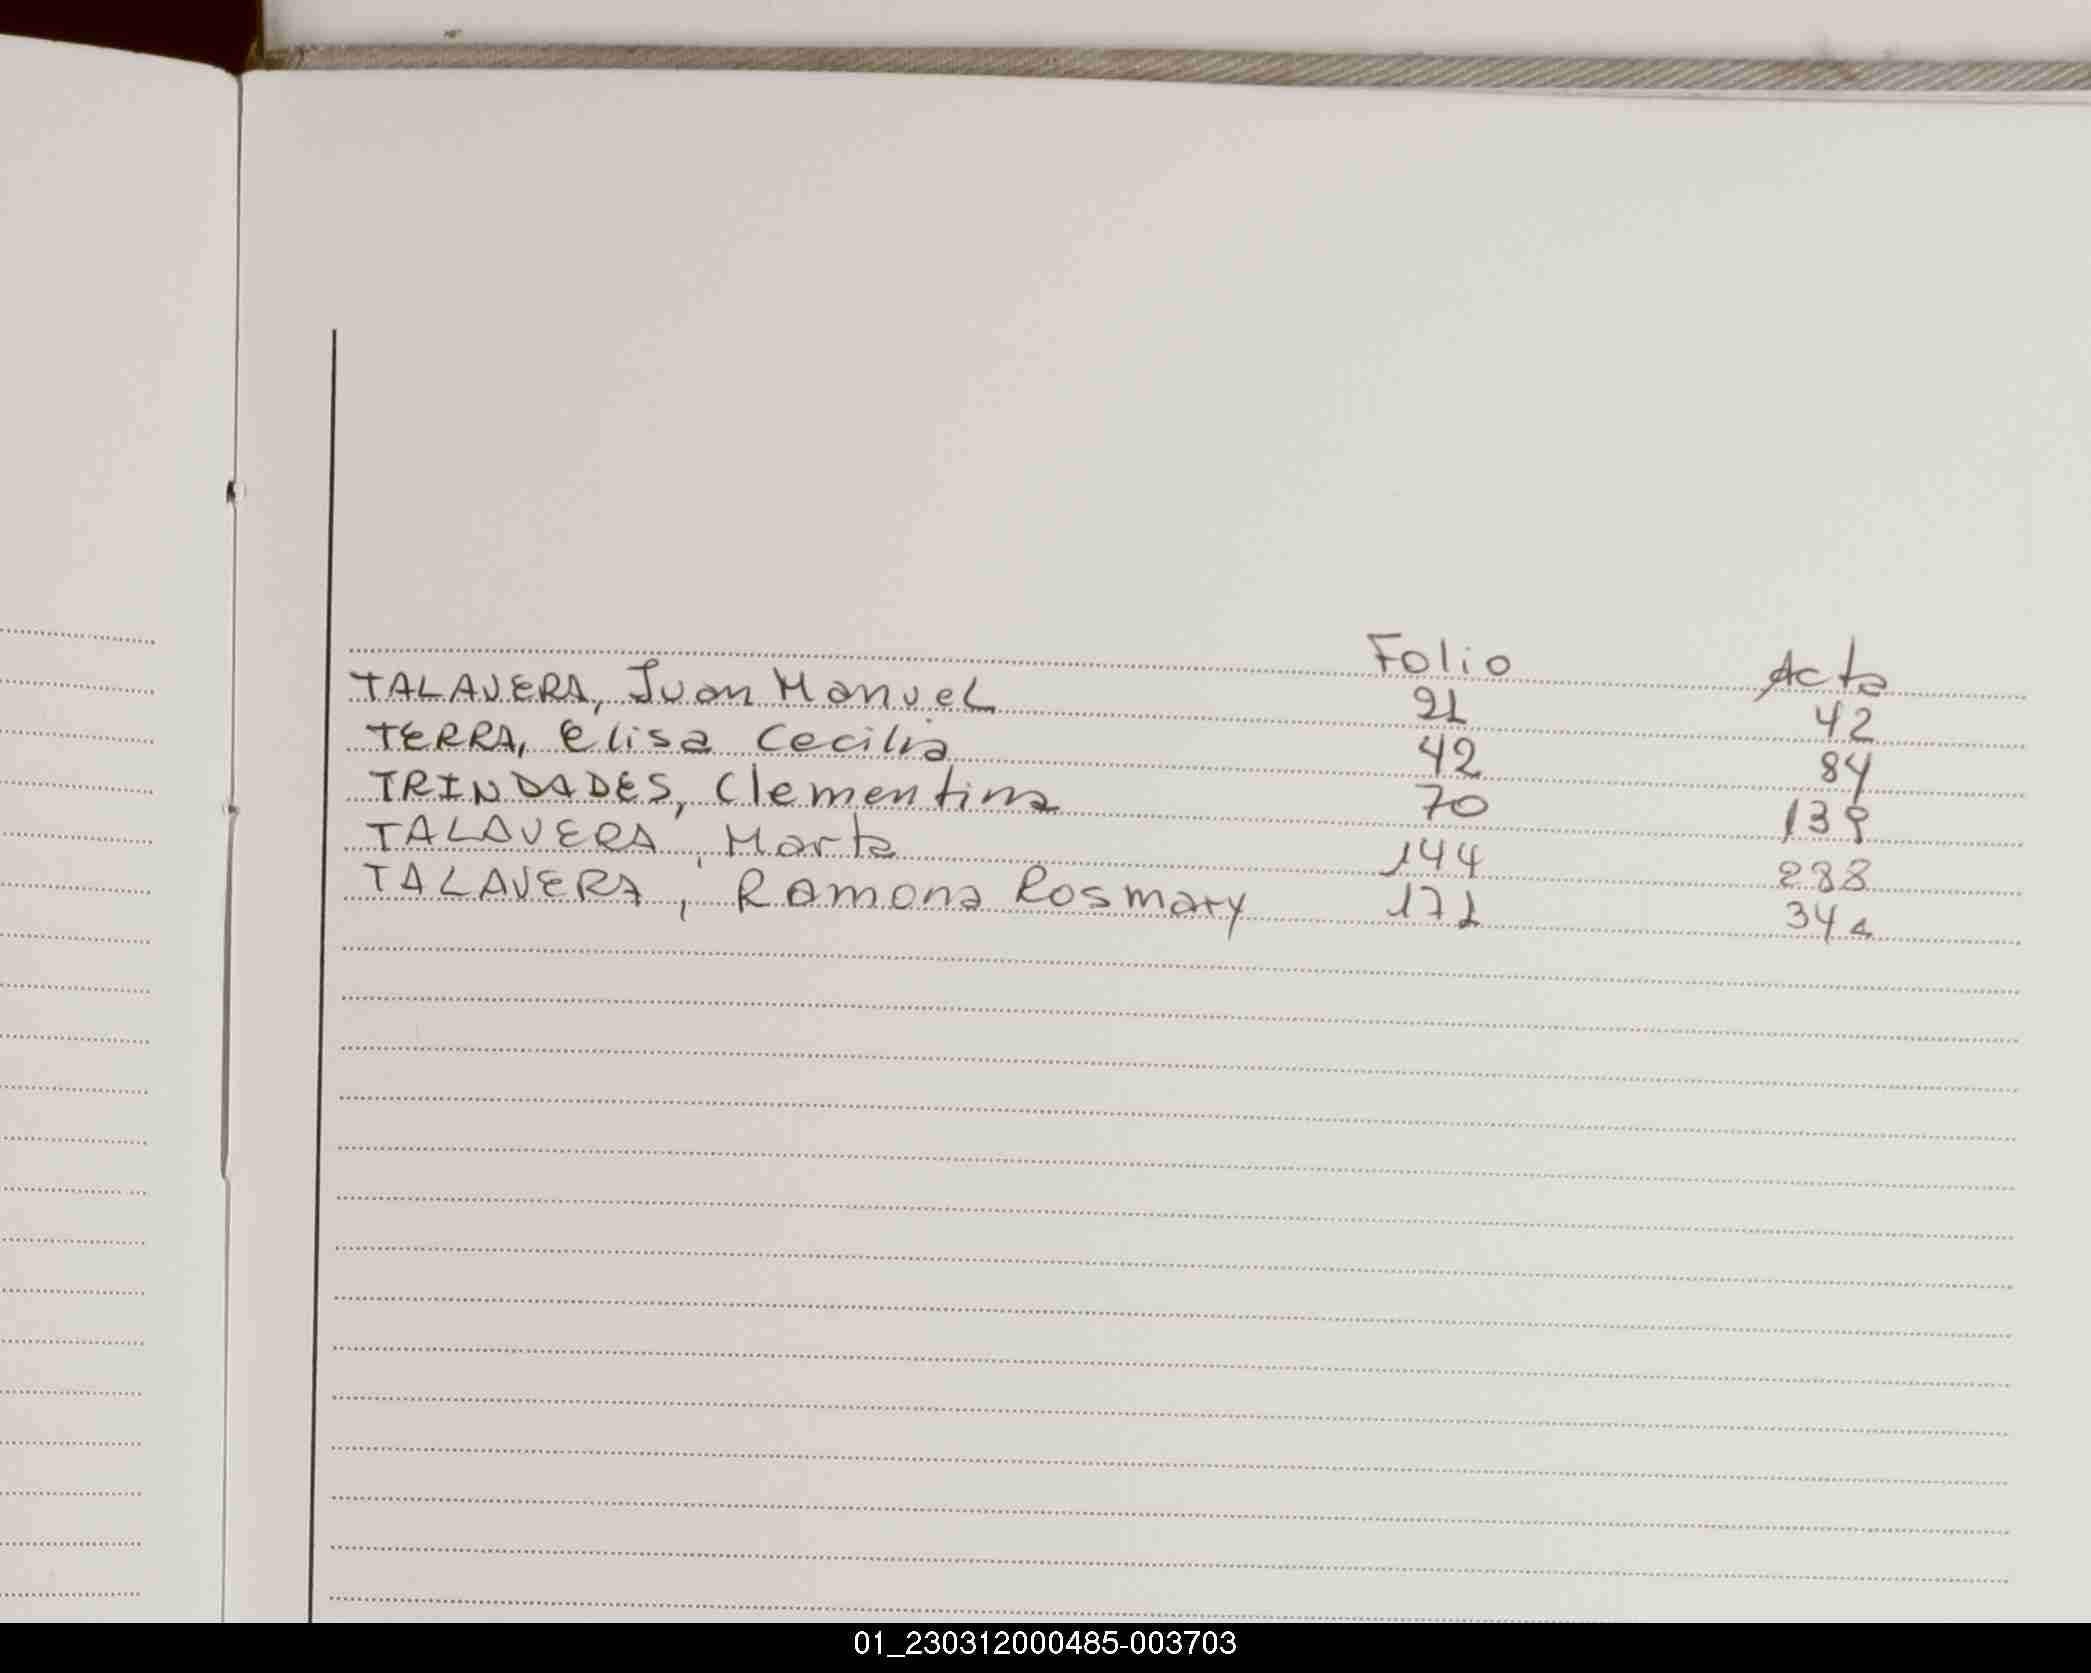 Folio Acta
TALAVERA, Juan Manuel 21 42
TERRA, Elisa Cecilia 42 84
TRINDADES, Clementina 70 139
TALAVERA, Marta 144 288
TALAVERA, Ramona Rosmary 171
01_230312000485-003703